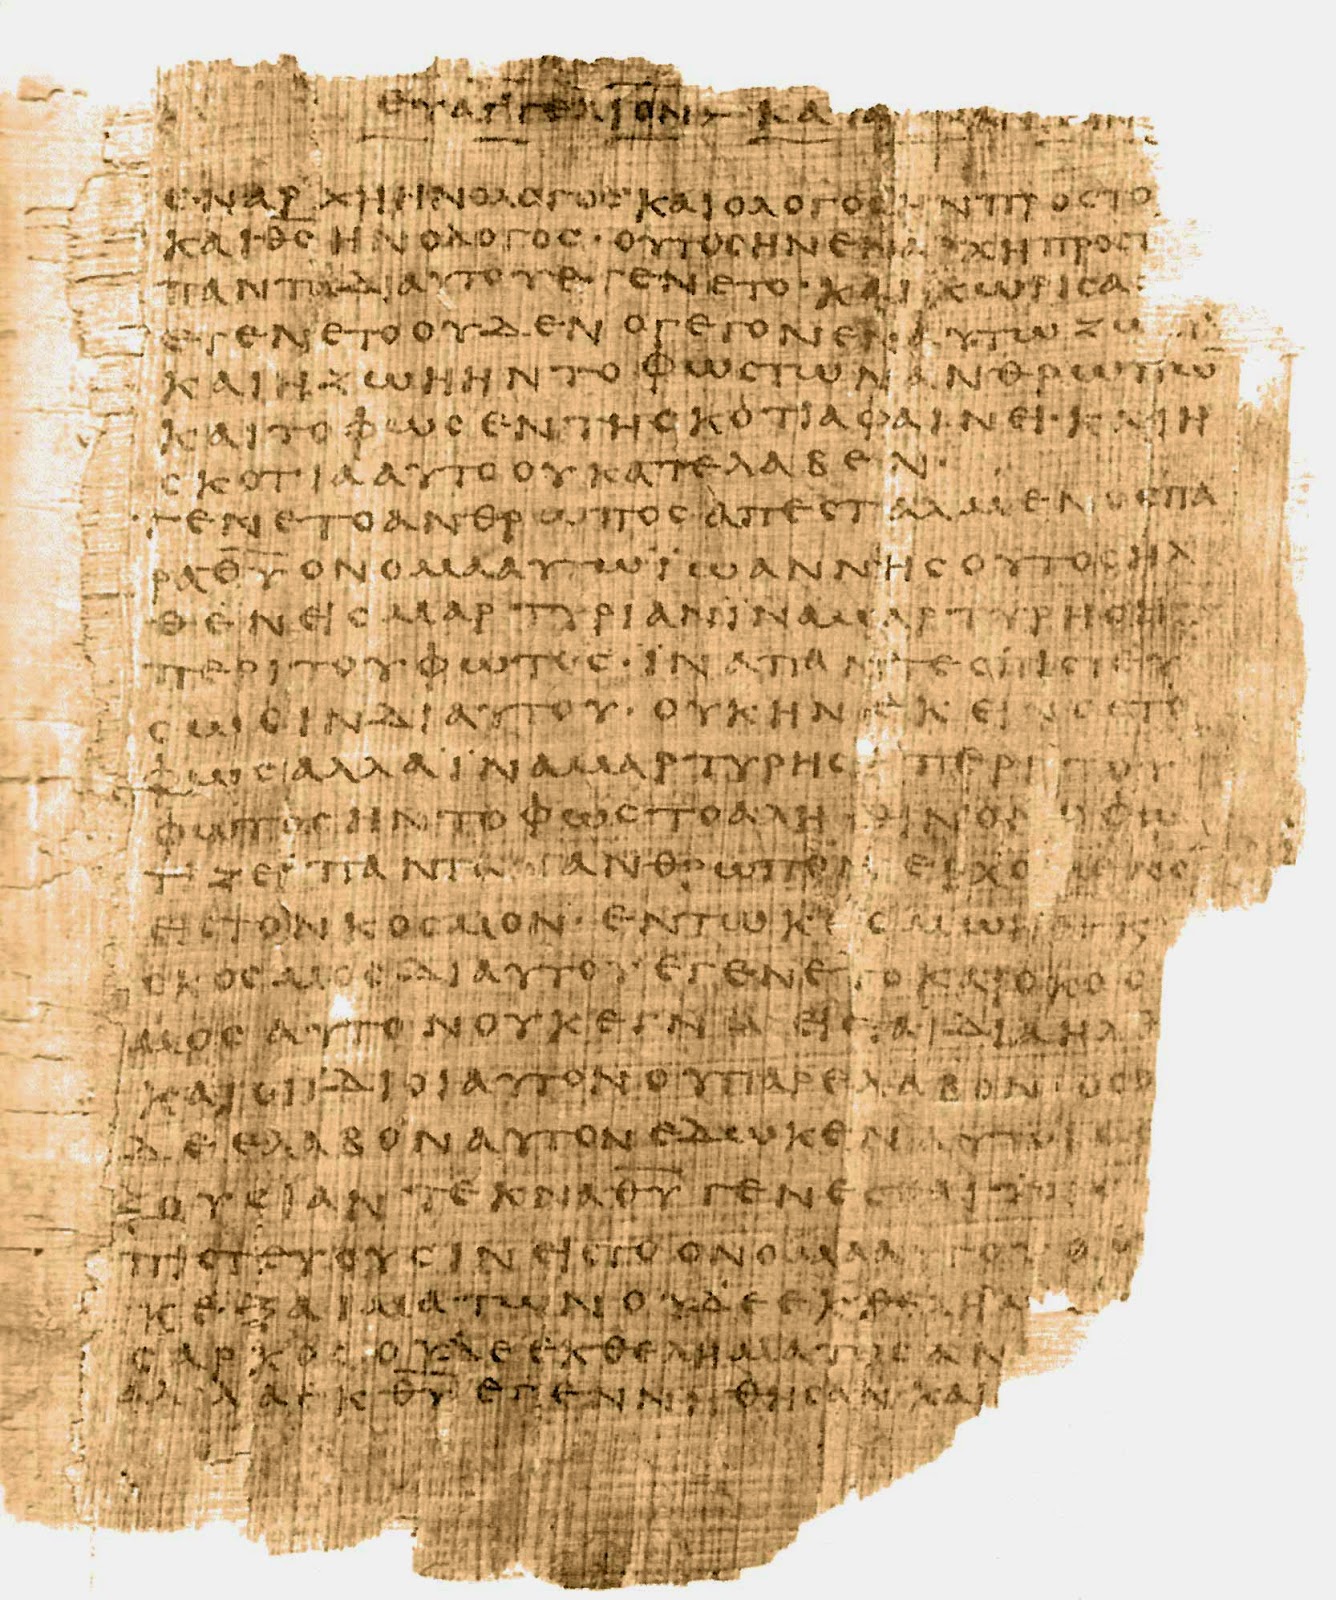 ευαγγελιον κατα
εναρχηηνολογοσκαιολογοσηνπροστο
και·θσηνολογοσ·ουτοσηνεναρχηπροστ
πανταδιαυτουεγενετο·καιχωρισα
εγενετοουδενογεγονενεναυτωζω
καιηζωηηντοφωστωνανθρωπω
καιτοφωσεντησκοτιαφαινει·καιη
σκοτιααυτοουκατελαβεν·
γενετοανθρωποσαπεσταλμενοσπα
ραθυονομααυτωϊωαννησουτοσηλ
θενεισμαρτυριανϊναμαρτυρηση
περιτουφωτοσ·ϊναπαντεσπιστευ
σωσινδιαυτου·ουκηνεκεινοστο
φωσαλλαϊναμαρτυρησηπεριτου
φωτοσηντοφωστοαληθινονοφω
τιζειπανταανθρωπονερχομενο
ειστονκοσμον·εντωκοσμωηνκ
οκοσμοσδιαυτουεγενετοκαιοκοσ
μοσαυτονουκεγνωεισταϊδιαηλθ
καιοιϊδιοιαυτονουπαρελαβον·οσο
δεελαβοναυτονεδωκεναυτοισε
ξουσιαντεκναθυγενεσθαιτοισ
πιστευουσινειστοονομααυτουο
κεξαιματωνουδεεκθελημ
σαρκοσουδεεκθεληματοσαν
αλλαεκθυεγεννηθησανκαι